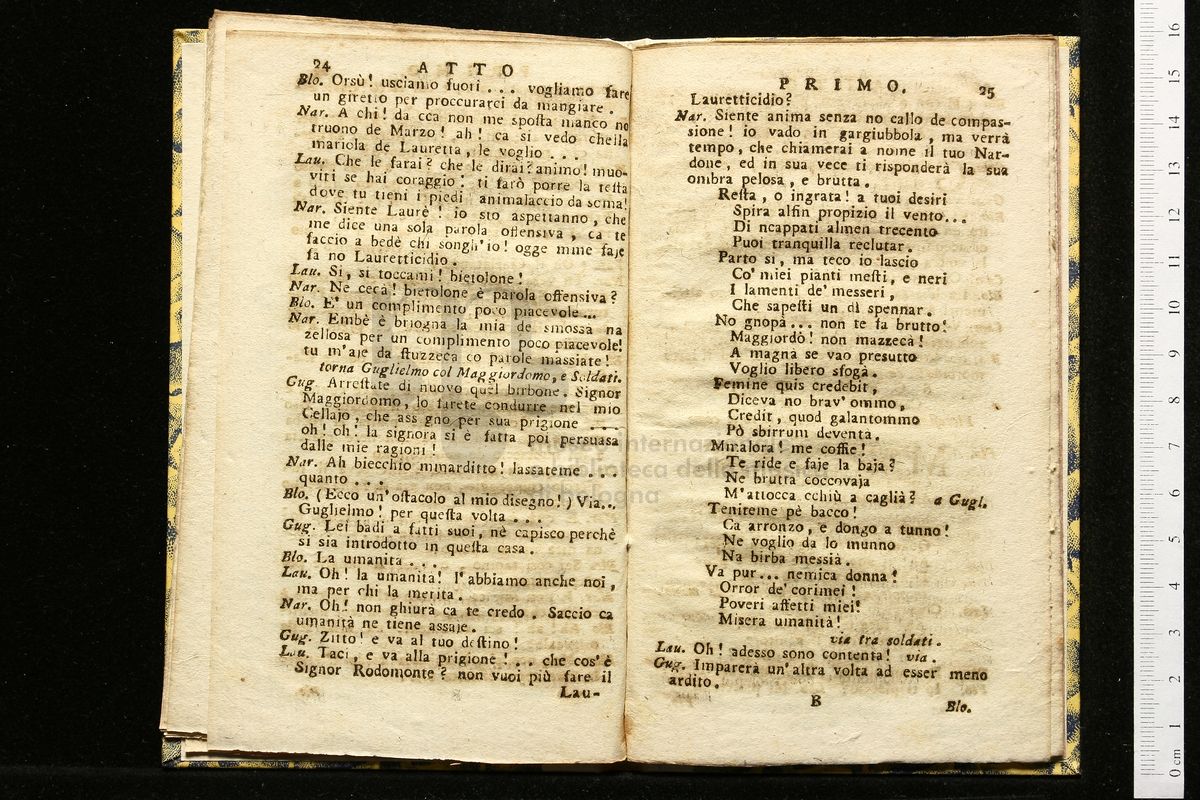 24 ATTO
Blo. Orsù! usciamo fuori... vogliamo fare
un giretto per proccurarci da mangiare.
Nar. A chi! da cca non me sposta manco no
truono de Marzo! ah! ca si vedo chella
mariola de Lauretta, le voglio...
Lau. Che le farai? che le dirai? animo! muo-
viti se hai coraggio! ti farò porre la testa
dove tu tieni i piedi animalaccio da soma!
Nar. Siente Laurè! io sto aspettanno, che
me dice una sola parola offensiva, ca te
faccio a bedè chi songh'io! ogge mme faje
fà no Lauretticidio.
Lau. Si, si toccami! bietolone!
Nar. Ne cecà! bietolone è parola offensiva?
Blo. E' un complimento poco piacevole...
Nar. Embè è briogna la mia de smossa na
zellosa per un complimento poco piacevole!
tu m'aje da stuzzecà co parole massiate!
torna Guglielmo col Maggiordomo, e Soldati.
Gug. Arrestate di nuovo quel birbone. Signor
Maggiordomo, lo farete condurre nel mio
Cellajo, che ass gno per sua prigione ....
oh! oh! la signora si è fatta poi persuasa
dalle mie ragioni!
Nar. Ah biecchio mmarditto! lassateme ...
quanto ...
Blo. (Ecco un' ostacolo al mio disegno!) Via..
Guglielmo! per questa volta ...
Gug. Lei badi a fatti suoi, nè capisco perchè
si sia introdotto in questa casa.
Blo. La umanità ...
Lau. Oh! la umanità! l'abbiamo anche noi,
ma per chi la merita.
Nar. Oh! non ghiurà ca te credo. Saccio ca
umanità ne tiene assaje.
Gug. Zitto! e va al tuo destino!
Lau. Taci, e va alla prigione!... che cos'è
Signor Rodomonte? non vuoi più fare il
Lau-
PRIMO. 25
Lauretticidio?
Nar. Siente anima senza no callo de compas-
sione! io vado in gargiubbola, ma verrà
tempo, che chiamerai a nome il tuo Nar-
done, ed in sua vece ti risponderà la sua
ombra pelosa, e brutta.
Resta, o ingrata! a tuoi desiri
Spira alfin propizio il vento...
Di ncappati almen trecento
Puoi tranquilla reclutar.
Parto si, ma teco io lascio
Co' miei pianti mesti, e neri
I lamenti de' messeri,
Che sapesti un dì spennar.
No gnopà... non te fa brutto!
Maggiordò! non mazzecà!
A magnà se vao presutto
Voglio libero sfogà.
Femine quis credebit,
Diceva no brav' ommo,
Credit, quod galantommo
Pò sbirrum deventa.
Mmalora! me coffie!
Te ride e faje la baja?
Ne brutta coccovaja
M'attocca cchiù a caglià? a Gugl.
Teniteme pè bacco!
Ca arronzo, e dongo a tunno!
Ne voglio da lo munno
Na birba messià.
Va pur... nemica donna!
Orror de' corimei!
Poveri affetti miei!
Misera umanità!
via tra soldati.
Lau. Oh! adesso sono contenta! via.
Gug. Imparerà un' altra volta ad esser meno
ardito.
B Blo.
museo internazionale
biblioteca della musica
di bologna
0 cm 1 2 3 4 5 6 7 8 9 10 11 12 13 14 15 16